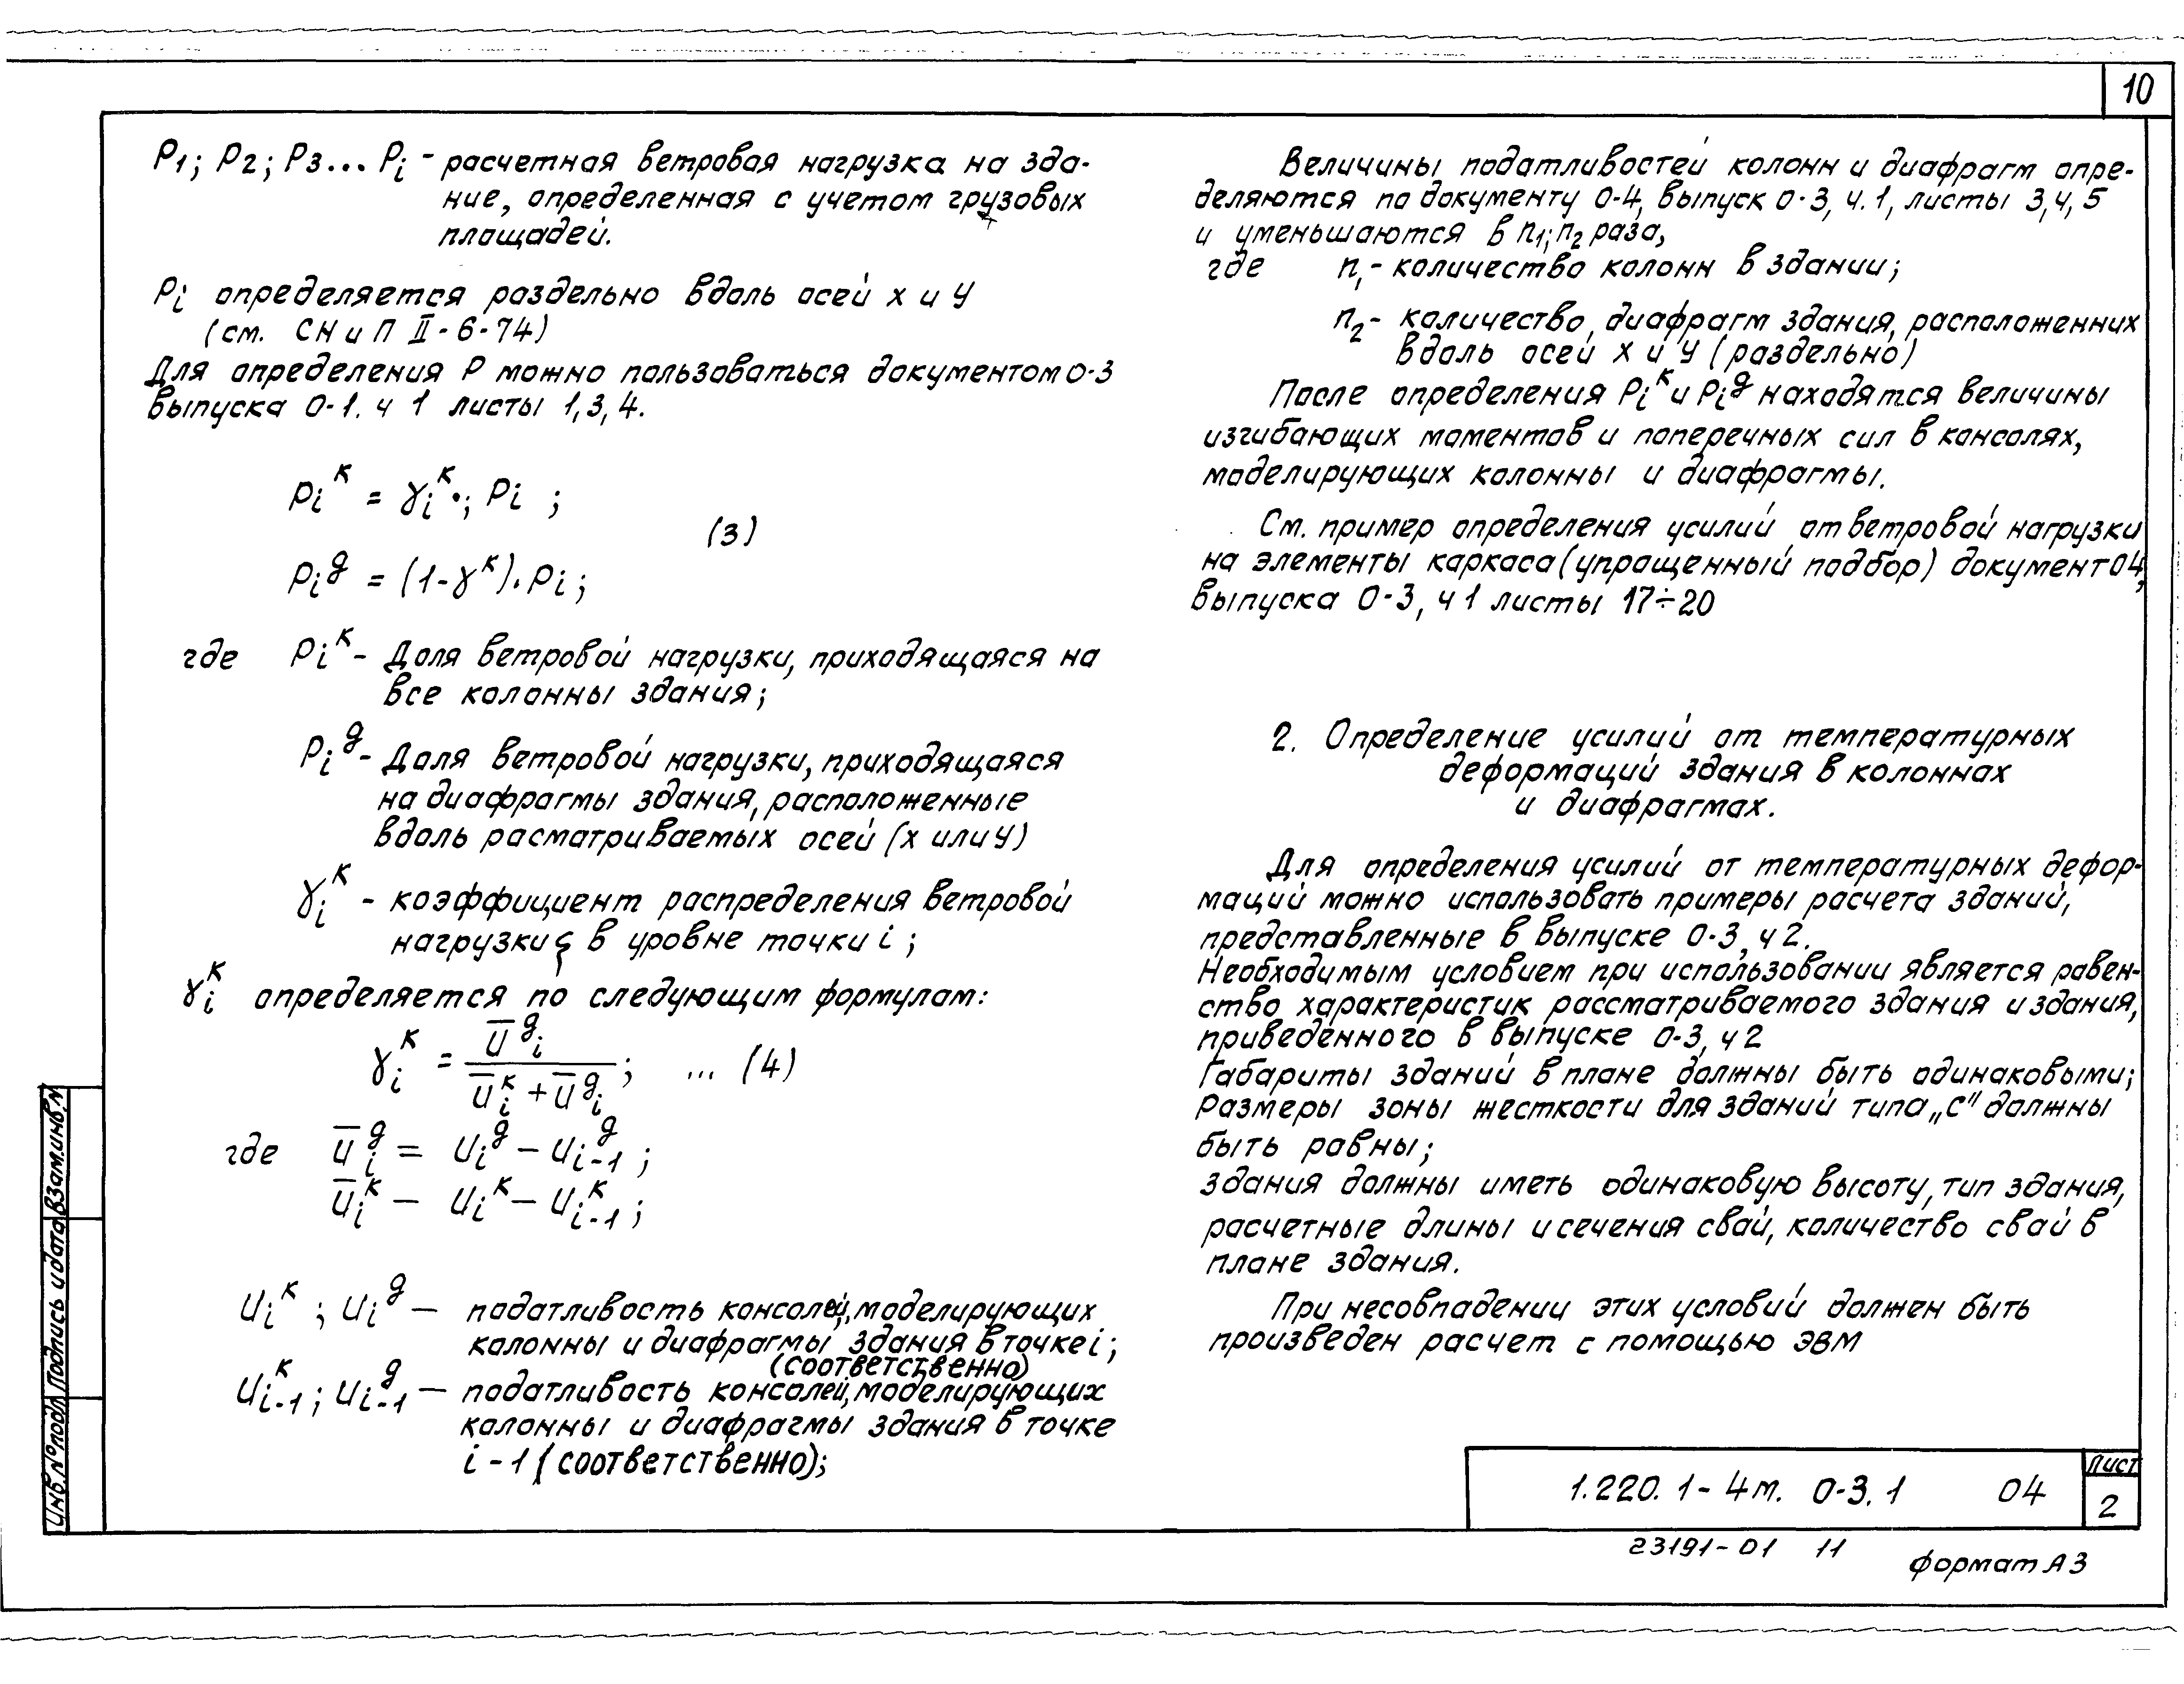 10
P1; P2; P3... Pi - расчетная ветровая нагрузка на зда-
ние, определенная с учетом грузовых
площадей.
Pi определяется раздельно вдоль осей х и у
(см. СН и П II-6-74)
Для определения Р можно пользоваться документом 0-3
выпуска 0-1. ч 1 листы 1,3,4.
Pi^к = γi^к·; Pi ;
(3)
Pi^д = (1-γ^к)·Pi;
где Pi^к - Доля ветровой нагрузки, приходящаяся на
все колонны здания;
Pi^д - Доля ветровой нагрузки, приходящаяся
на диафрагмы здания, расположенные
вдоль расматриваемых осей (х или у)
γi^к - коэффициент распределения ветровой
нагрузки в уровне точки i;
γi^к определяется по следующим формулам:
γi^к = U̅i^д / (U̅i^к + U̅i^д); ... (4)
где U̅i^д = Ui^д - Ui-1^д;
U̅i^к - Ui^к - Ui-1^к;
Ui^к; Ui^д — податливость консолей, моделирующих
колонны и диафрагмы здания в точке i;
(соответственно)
Ui-1^к; Ui-1^д — податливость консолей, моделирующих
колонны и диафрагмы здания в точке
i-1 (соответственно);
Величины податливостей колонн и диафрагм опре-
деляются по документу 0-4, выпуск 0-3, ч.1, листы 3,4,5
и уменьшаются в n1; n2 раза,
где n1 - количество колонн в здании;
n2 - количество диафрагм здания, расположенних
вдоль осей х и у (раздельно)
После определения Pi^к и Pi^д находятся величины
изгибающих моментов и поперечных сил в консолях,
моделирующих колонны и диафрагмы.
См. пример определения усилий от ветровой нагрузки
на элементы каркаса (упращенный подбор) документ 04,
выпуска 0-3, ч 1 листы 17÷20
2. Определение усилий от температурных
деформаций здания в колоннах
и диафрагмах.
Для определения усилий от температурных дефор-
маций можно использовать примеры расчета зданий,
представленные в выпуске 0-3, ч 2.
Необходимым условием при использовании является равен-
ство характеристик рассматриваемого здания и здания,
приведенного в выпуске 0-3, ч 2
Габариты зданий в плане должны быть одинаковыми;
Размеры зоны жесткости для зданий типа „С" должны
быть равны;
здания должны иметь одинаковую высоту, тип здания,
расчетные длины и сечения свай, количество свай в
плане здания.
При несовпадении этих условий должен быть
произведен расчет с помощью ЭВМ
Инв.№подл Подпись и дата Взам.инв.№
1.220.1-4м. 0-3.1 04
Лист
2
23191-01 11
формат А3